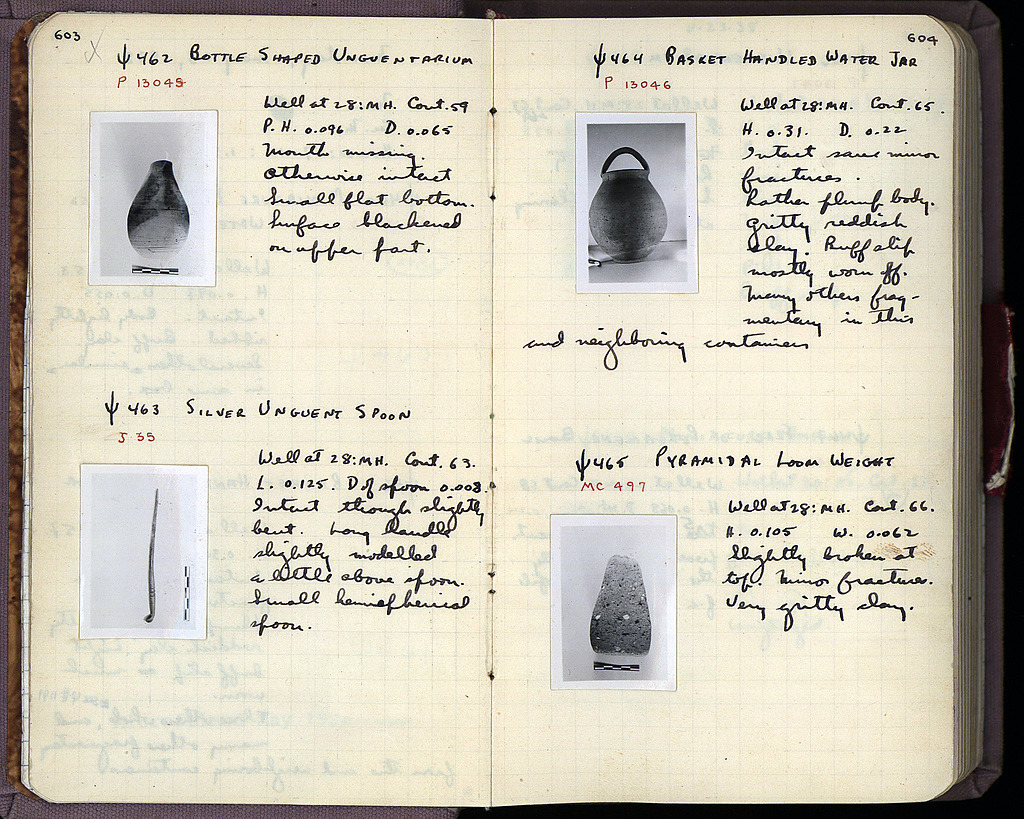 603
ψ 462 BOTTLE SHAPED UNGUENTARIUM
P 13045
Well at 28:MH. Cont. 59
P.H. 0.096 D. 0.065
Mouth missing.
Otherwise intact
Small flat bottom.
Surface blackened
on upper part.
ψ 463 SILVER UNGUENT SPOON
J 35
Well at 28:MH. Cont. 63.
L. 0.125. D of spoon 0.008.
Intact through slightly
bent. Long handle
slightly modelled
a little above spoon.
Small hemispherical
spoon.
604
ψ 464 BASKET HANDLED WATER JAR
P 13046
Well at 28:MH. Cont. 65.
H. 0.31. D. 0.22
Intact save minor
fractures.
Rather plump body.
Gritty reddish
clay. Buff slip
mostly worn off.
Many others frag-
mentary in this
and neighboring containers
ψ 465 PYRAMIDAL LOOM WEIGHT
MC 497
Well at 28:MH. Cont. 66.
H. 0.105 W. 0.062
Slightly broken at
top. Minor fractures.
Very gritty clay.